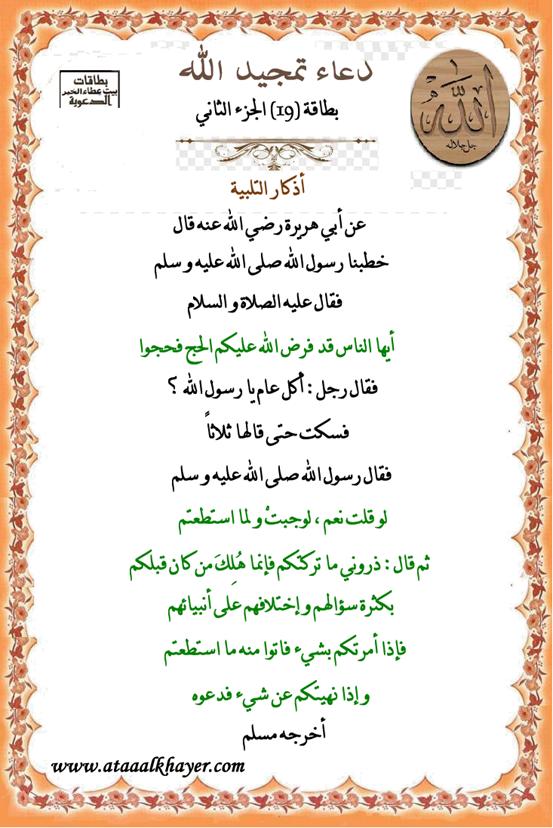 دعاء تمجيد الله
بطاقات
بيت عطاء الخير
الدعوية
بطاقة (19) الجزء الثاني
الله
جل جلاله
أذكار التلبية
عن أبي هريرة رضي الله عنه قال
خطبنا رسول الله صلى الله عليه و سلم
فقال عليه الصلاة و السلام
أيها الناس قد فرض الله عليكم الحج فحجوا
فقال رجل : أكل عام يا رسول الله ؟
فسكت حتى قالها ثلاثاً
فقال رسول الله صلى الله عليه و سلم
لو قلت نعم ، لوجبتْ و لما استطعتم
ثم قال : ذروني ما تركتكم فإنما هُلِكَ من كان قبلكم
بكثرة سؤالهم و إختلافهم عَلى أنبيائهم
فإذا أمرتكم بشيء فاتوا منه ما استطعتم
و إذا نهيتكم عن شيء فدعوه
أخرجه مسلم
www.ataaalkhayer.com